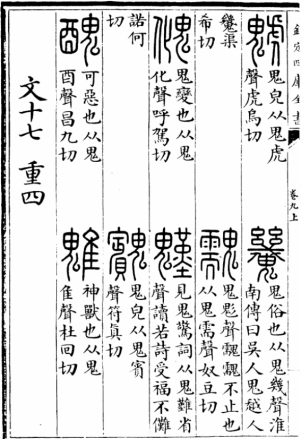 欽定四庫全書
卷九上
鬼皃从鬼虎
聲虎烏切
鬼俗也从鬼幾聲淮
南傳曰吳人鬼越人
渠
希切
䰰
鬼彪聲䰰䰰不止也
从鬼需聲奴豆切
𩲏
鬼變也从鬼
化聲呼駕切
見鬼驚詞从鬼難省
聲讀若詩受福不儺
諾何
切
鬼皃从鬼賓
聲符真切
醜
可惡也从鬼
酉聲昌九切
魋
神獸也从鬼
隹聲杜回切
文十七 重四